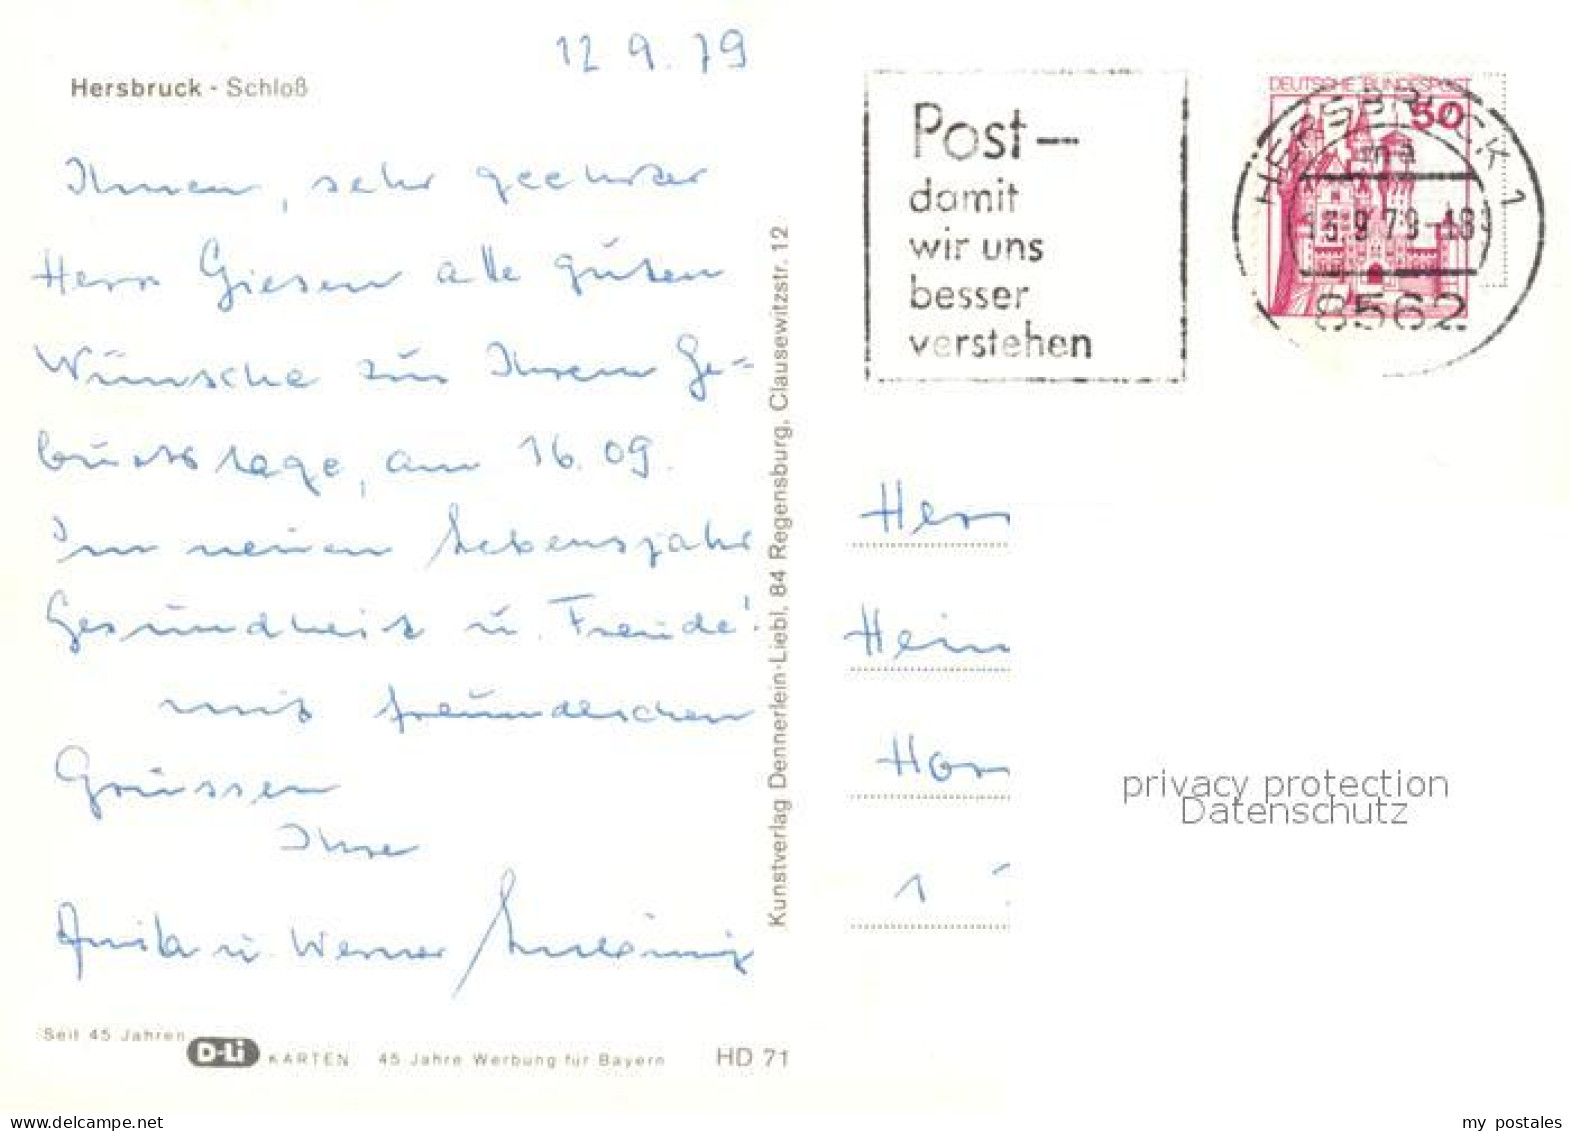 12 9. 79
Hersbruck - Schloß
Ihnen, sehr geehrter
Herr Giesen alle guten
Wünsche zur Ihrem Ge=
burtstage, am 16.09.
Im neuen Lebensjahr
Gesundheit u. Freude!
mit freundlichen
Grüssen
Ihre
Anita u. Werner
Seit 45 Jahren
D-Li KARTEN 45 Jahre Werbung für Bayern HD 71
Kunstverlag Dennerlein-Liebl, 84 Regensburg, Clausewitzstr. 12
Post-
damit
wir uns
besser
verstehen
DEUTSCHE BUNDESPOST
50
HERSBRUCK 1
ma
13.9.79-18
8562
Herr
Hein
1
privacy protection
Datenschutz
my postales